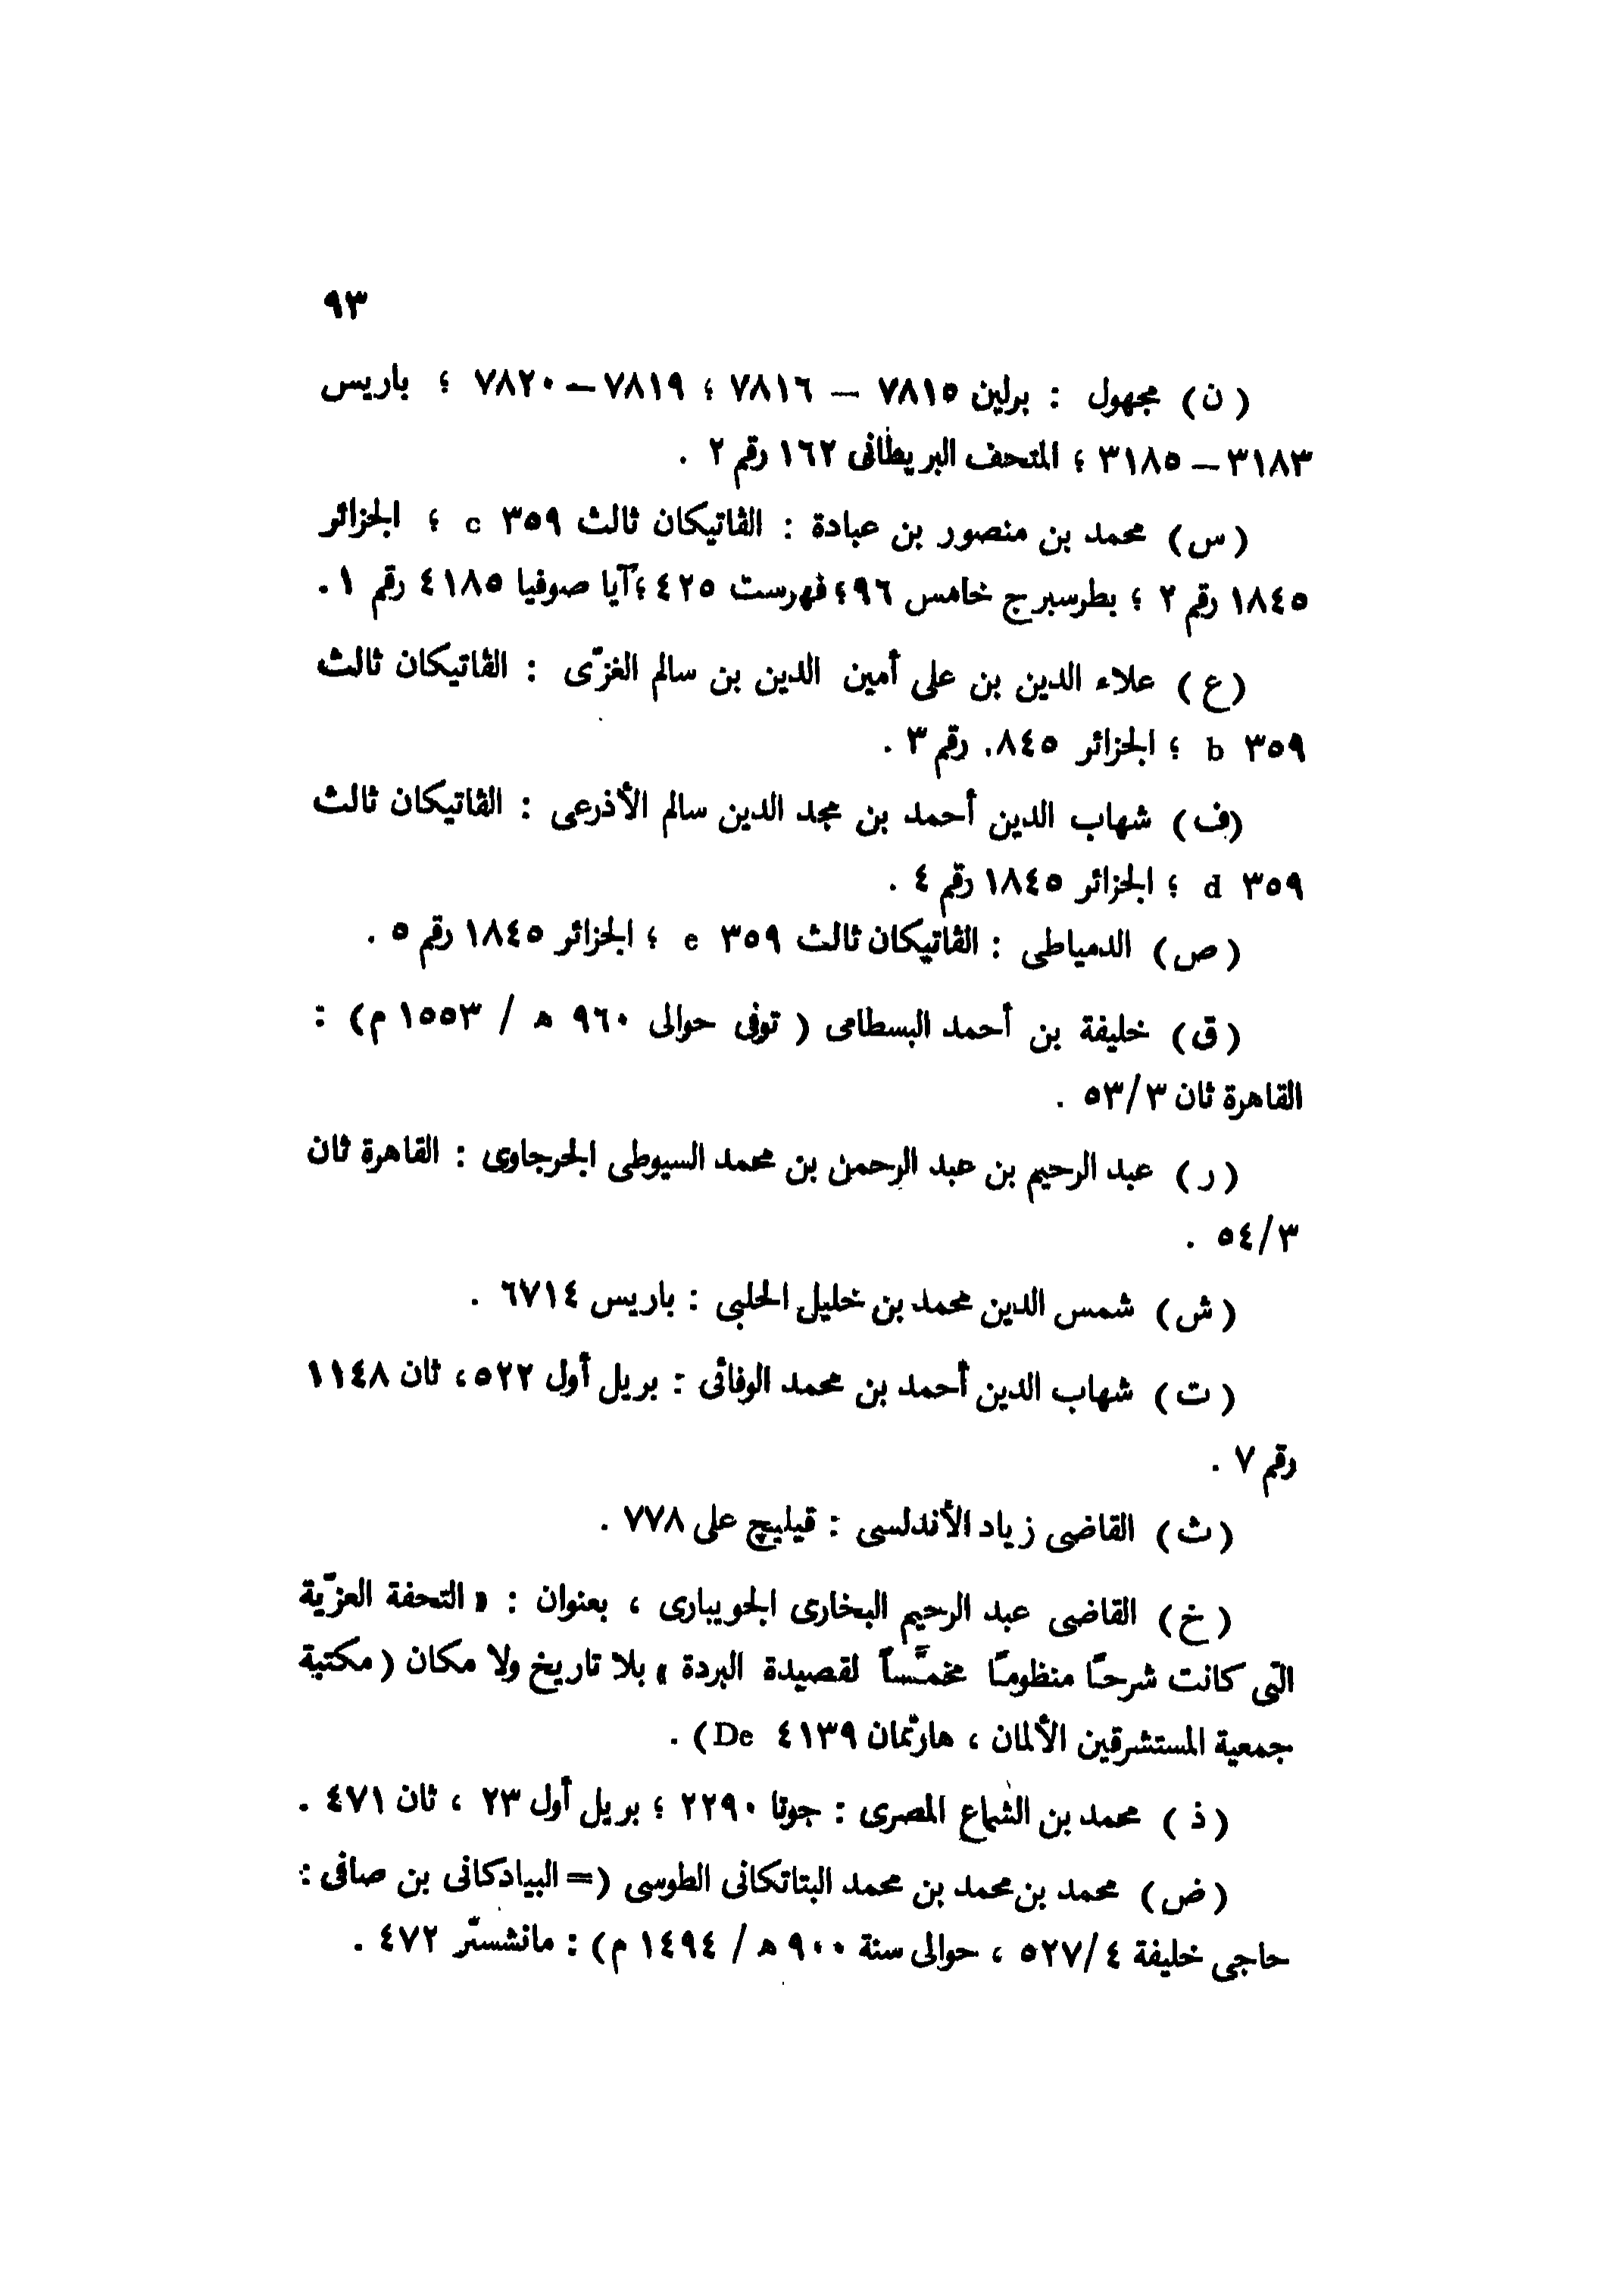 ٩٣
(ن) مجهول : برلين ٧٨١٥ – ٧٨١٦ ؛ ٧٨١٩ – ٧٨٢٠ ؛ باريس
٣١٨٣ – ٣١٨٥ ؛ المتحف البريطانى ١٦٢ رقم ٢ .
(س) محمد بن منصور بن عبادة : الڤاتيكان ثالث ٣٥٩ c ؛ الجزائر
١٨٤٥ رقم ٢ ؛ بطرسبرج خامس ٩٦ ؛ فهرست ٤٢٥ ؛ آيا صوفيا ٤١٨٥ رقم ١ .
(ع) علاء الدين بن على أمين الدين بن سالم الغزّى : الڤاتيكان ثالث
٣٥٩ b ؛ الجزائر ٨٤٥. رقم ٣ .
(ف) شهاب الدين أحمد بن مجد الدين سالم الأذرعى : الڤاتيكان ثالث
٣٥٩ d ؛ الجزائر ١٨٤٥ رقم ٤ .
(ص) الدمياطى : الڤاتيكان ثالث ٣٥٩ e ؛ الجزائر ١٨٤٥ رقم ٥ .
(ق) خليفة بن أحمد البسطامى ( توفى حوالى ٩٦٠ ه / ١٥٥٣ م) :
القاهرة ثان ٥٣/٣ .
(ر) عبد الرحيم بن عبد الرحمن بن محمد السيوطى الجرجاوى : القاهرة ثان
٥٤/٣ .
(ش) شمس الدين محمد بن خليل الحلبى : باريس ٦٧١٤ .
(ت) شهاب الدين أحمد بن محمد الوفائى : بريل أول ٥٢٢ ، ثان ١١٤٨
رقم ٧ .
(ث) القاضى زياد الأندلسى : قيليچ على ٧٧٨ .
(خ) القاضى عبد الرحيم البخارى الجويبارى ، بعنوان : « التحفة العزّية
التى كانت شرحًا منظومًا مخمَّسًا لقصيدة البردة » بلا تاريخ ولا مكان ( مكتبة
جمعية المستشرقين الألمان ، هارتمان ٤١٣٩ De) .
(ذ) محمد بن الشماع المصرى : جوتا ٢٢٩٠ ؛ بريل أول ٢٣ ، ثان ٤٧١ .
(ض) محمد بن محمد بن محمد البتاتكانى الطوسى (= البيادكانى بن صافى :
حاجى خليفة ٥٢٧/٤ ، حوالى سنة ٩٠٠ ه / ١٤٩٤ م) : مانشستّر ٤٧٢ .